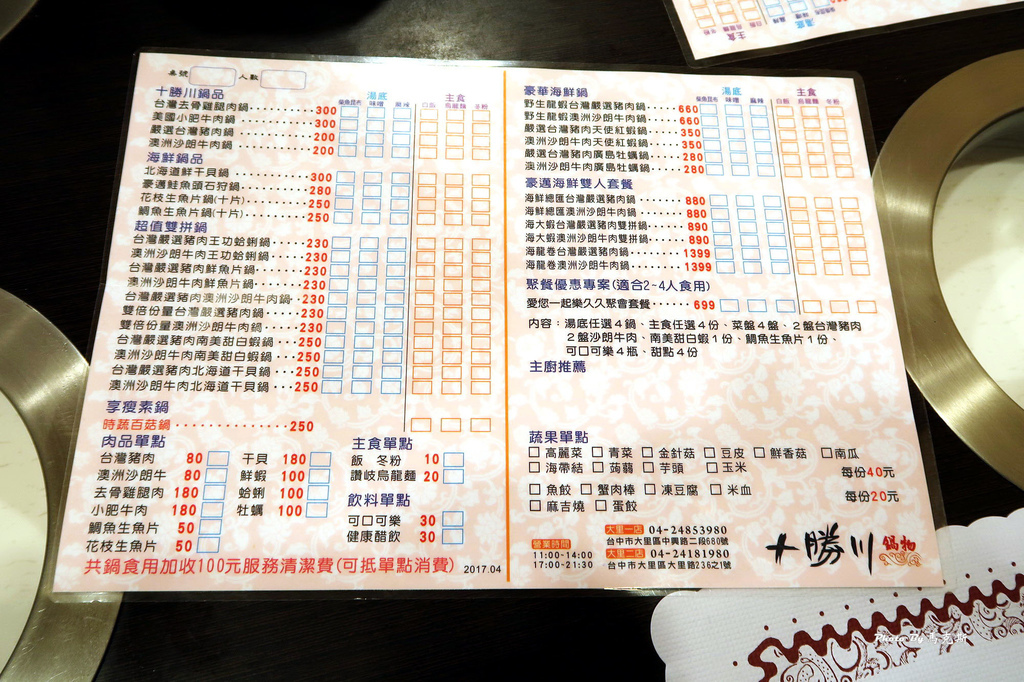 桌號 人數
十勝川鍋品 湯底 主食
柴魚昆布 味噌 麻辣 白飯 烏龍麵 冬粉
台灣去骨雞腿肉鍋 300
美國小肥牛肉鍋 300
嚴選台灣豬肉鍋 200
澳洲沙朗牛肉鍋 200
海鮮鍋品
北海道鮮干貝鍋 300
豪邁鮭魚頭石狩鍋 280
花枝生魚片鍋(十片) 250
鯛魚生魚片鍋(十片) 250
超值雙拼鍋
台灣嚴選豬肉王功蛤蜊鍋 230
澳洲沙朗牛肉王功蛤蜊鍋 230
台灣嚴選豬肉鮮魚片鍋 230
澳洲沙朗牛肉鮮魚片鍋 230
台灣嚴選豬肉澳洲沙朗牛肉鍋 230
雙倍份量台灣嚴選豬肉鍋 230
雙倍份量澳洲沙朗牛肉鍋 230
台灣嚴選豬肉南美甜白蝦鍋 250
澳洲沙朗牛肉南美甜白蝦鍋 250
台灣嚴選豬肉北海道干貝鍋 250
澳洲沙朗牛肉北海道干貝鍋 250
享瘦素鍋
時蔬百菇鍋 250
肉品單點
台灣豬肉 80 干貝 180
澳洲沙朗牛 80 鮮蝦 100
去骨雞腿肉 180 蛤蜊 100
小肥牛肉 180 牡蠣 100
鯛魚生魚片 50
花枝生魚片 50
主食單點
飯 冬粉 10
讚岐烏龍麵 20
飲料單點
可口可樂 30
健康醋飲 30
共鍋食用加收100元服務清潔費(可抵單點消費) 2017.04
豪華海鮮鍋 湯底 主食
柴魚昆布 味噌 麻辣 白飯 烏龍麵 冬粉
野生龍蝦台灣嚴選豬肉鍋 660
野生龍蝦澳洲沙朗牛肉鍋 660
嚴選台灣豬肉天使紅蝦鍋 350
澳洲沙朗牛肉天使紅蝦鍋 350
嚴選台灣豬肉廣島牡蠣鍋 280
澳洲沙朗牛肉廣島牡蠣鍋 280
豪邁海鮮雙人套餐
海鮮總匯台灣嚴選豬肉鍋 880
海鮮總匯澳洲沙朗牛肉鍋 880
海大蝦台灣嚴選豬肉雙拼鍋 890
海大蝦澳洲沙朗牛肉雙拼鍋 890
海龍卷台灣嚴選豬肉鍋 1399
海龍卷澳洲沙朗牛肉鍋 1399
聚餐優惠專案(適合2~4人食用)
愛您一起樂久久聚會套餐 699
內容：湯底任選4鍋、主食任選4份、菜盤4盤、2盤台灣豬肉
2盤沙朗牛肉、南美甜白蝦1份、鯛魚生魚片1份、
可口可樂4瓶、甜點4份
主廚推薦
蔬果單點
□高麗菜 □青菜 □金針菇 □豆皮 □鮮香菇 □南瓜
□海帶結 □蒟蒻 □芋頭 □玉米 每份40元
□魚餃 □蟹肉棒 □凍豆腐 □米血 每份20元
□麻吉燒 □蛋餃
營業時間
11:00-14:00
17:00-21:30
大里一店 04-24853980
台中市大里區中興路二段680號
大里二店 04-24181980
台中市大里區大里路236之1號
十勝川 鍋物
主食 湯底
Photo By 馬克斯